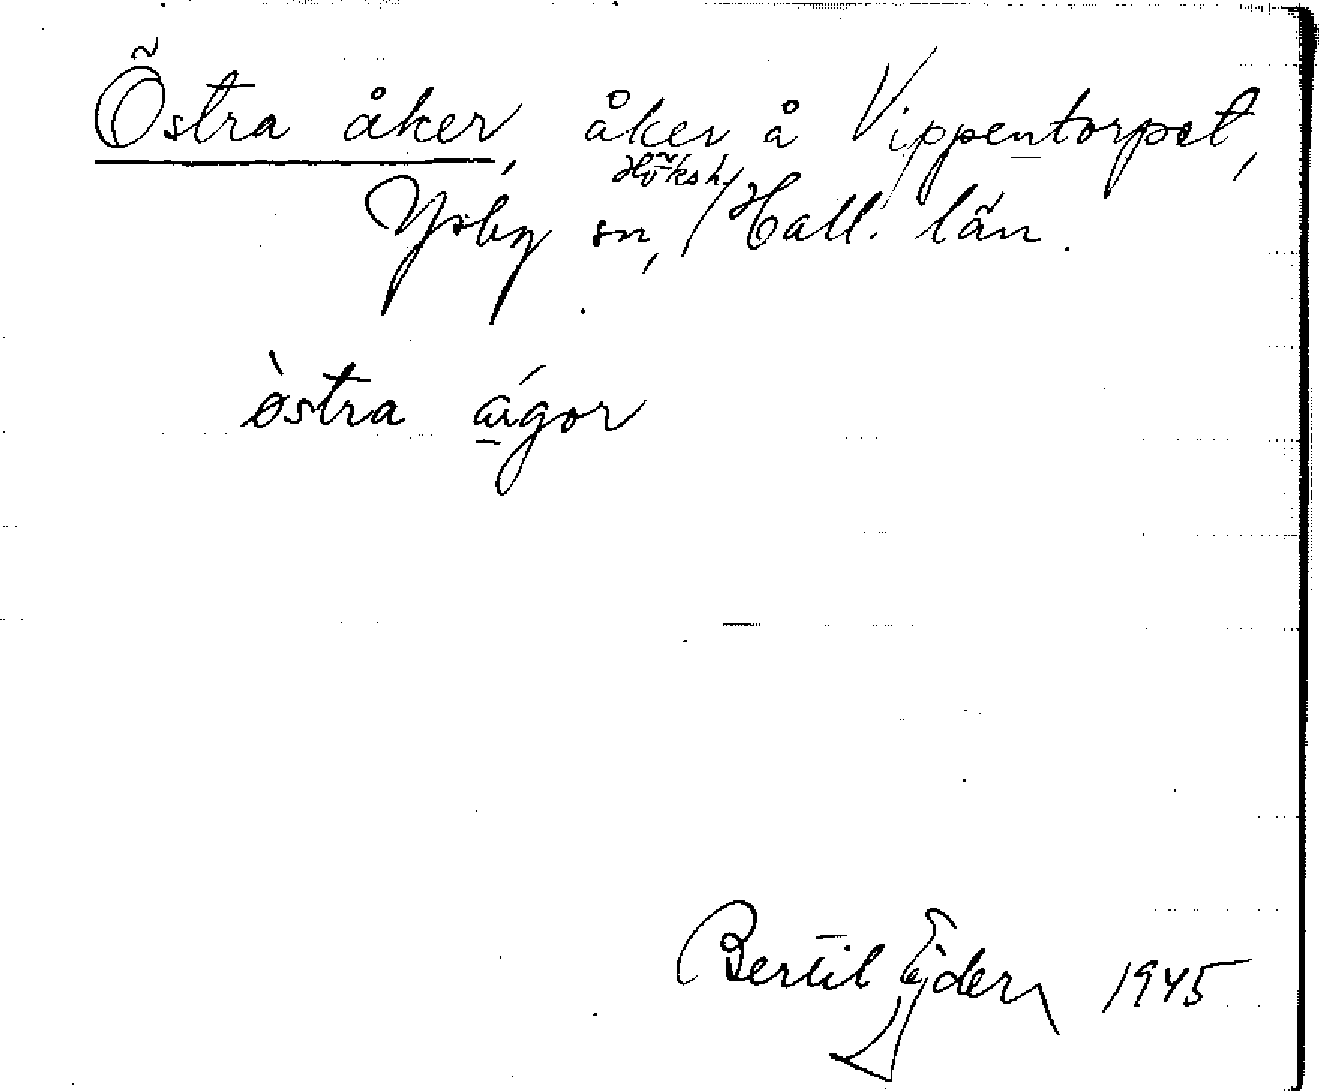 Östra åker, åker å Vippentorpet,
Ysby sn, Höksh/Hall. län.
òstra ágor
Bertil Ejder 1945